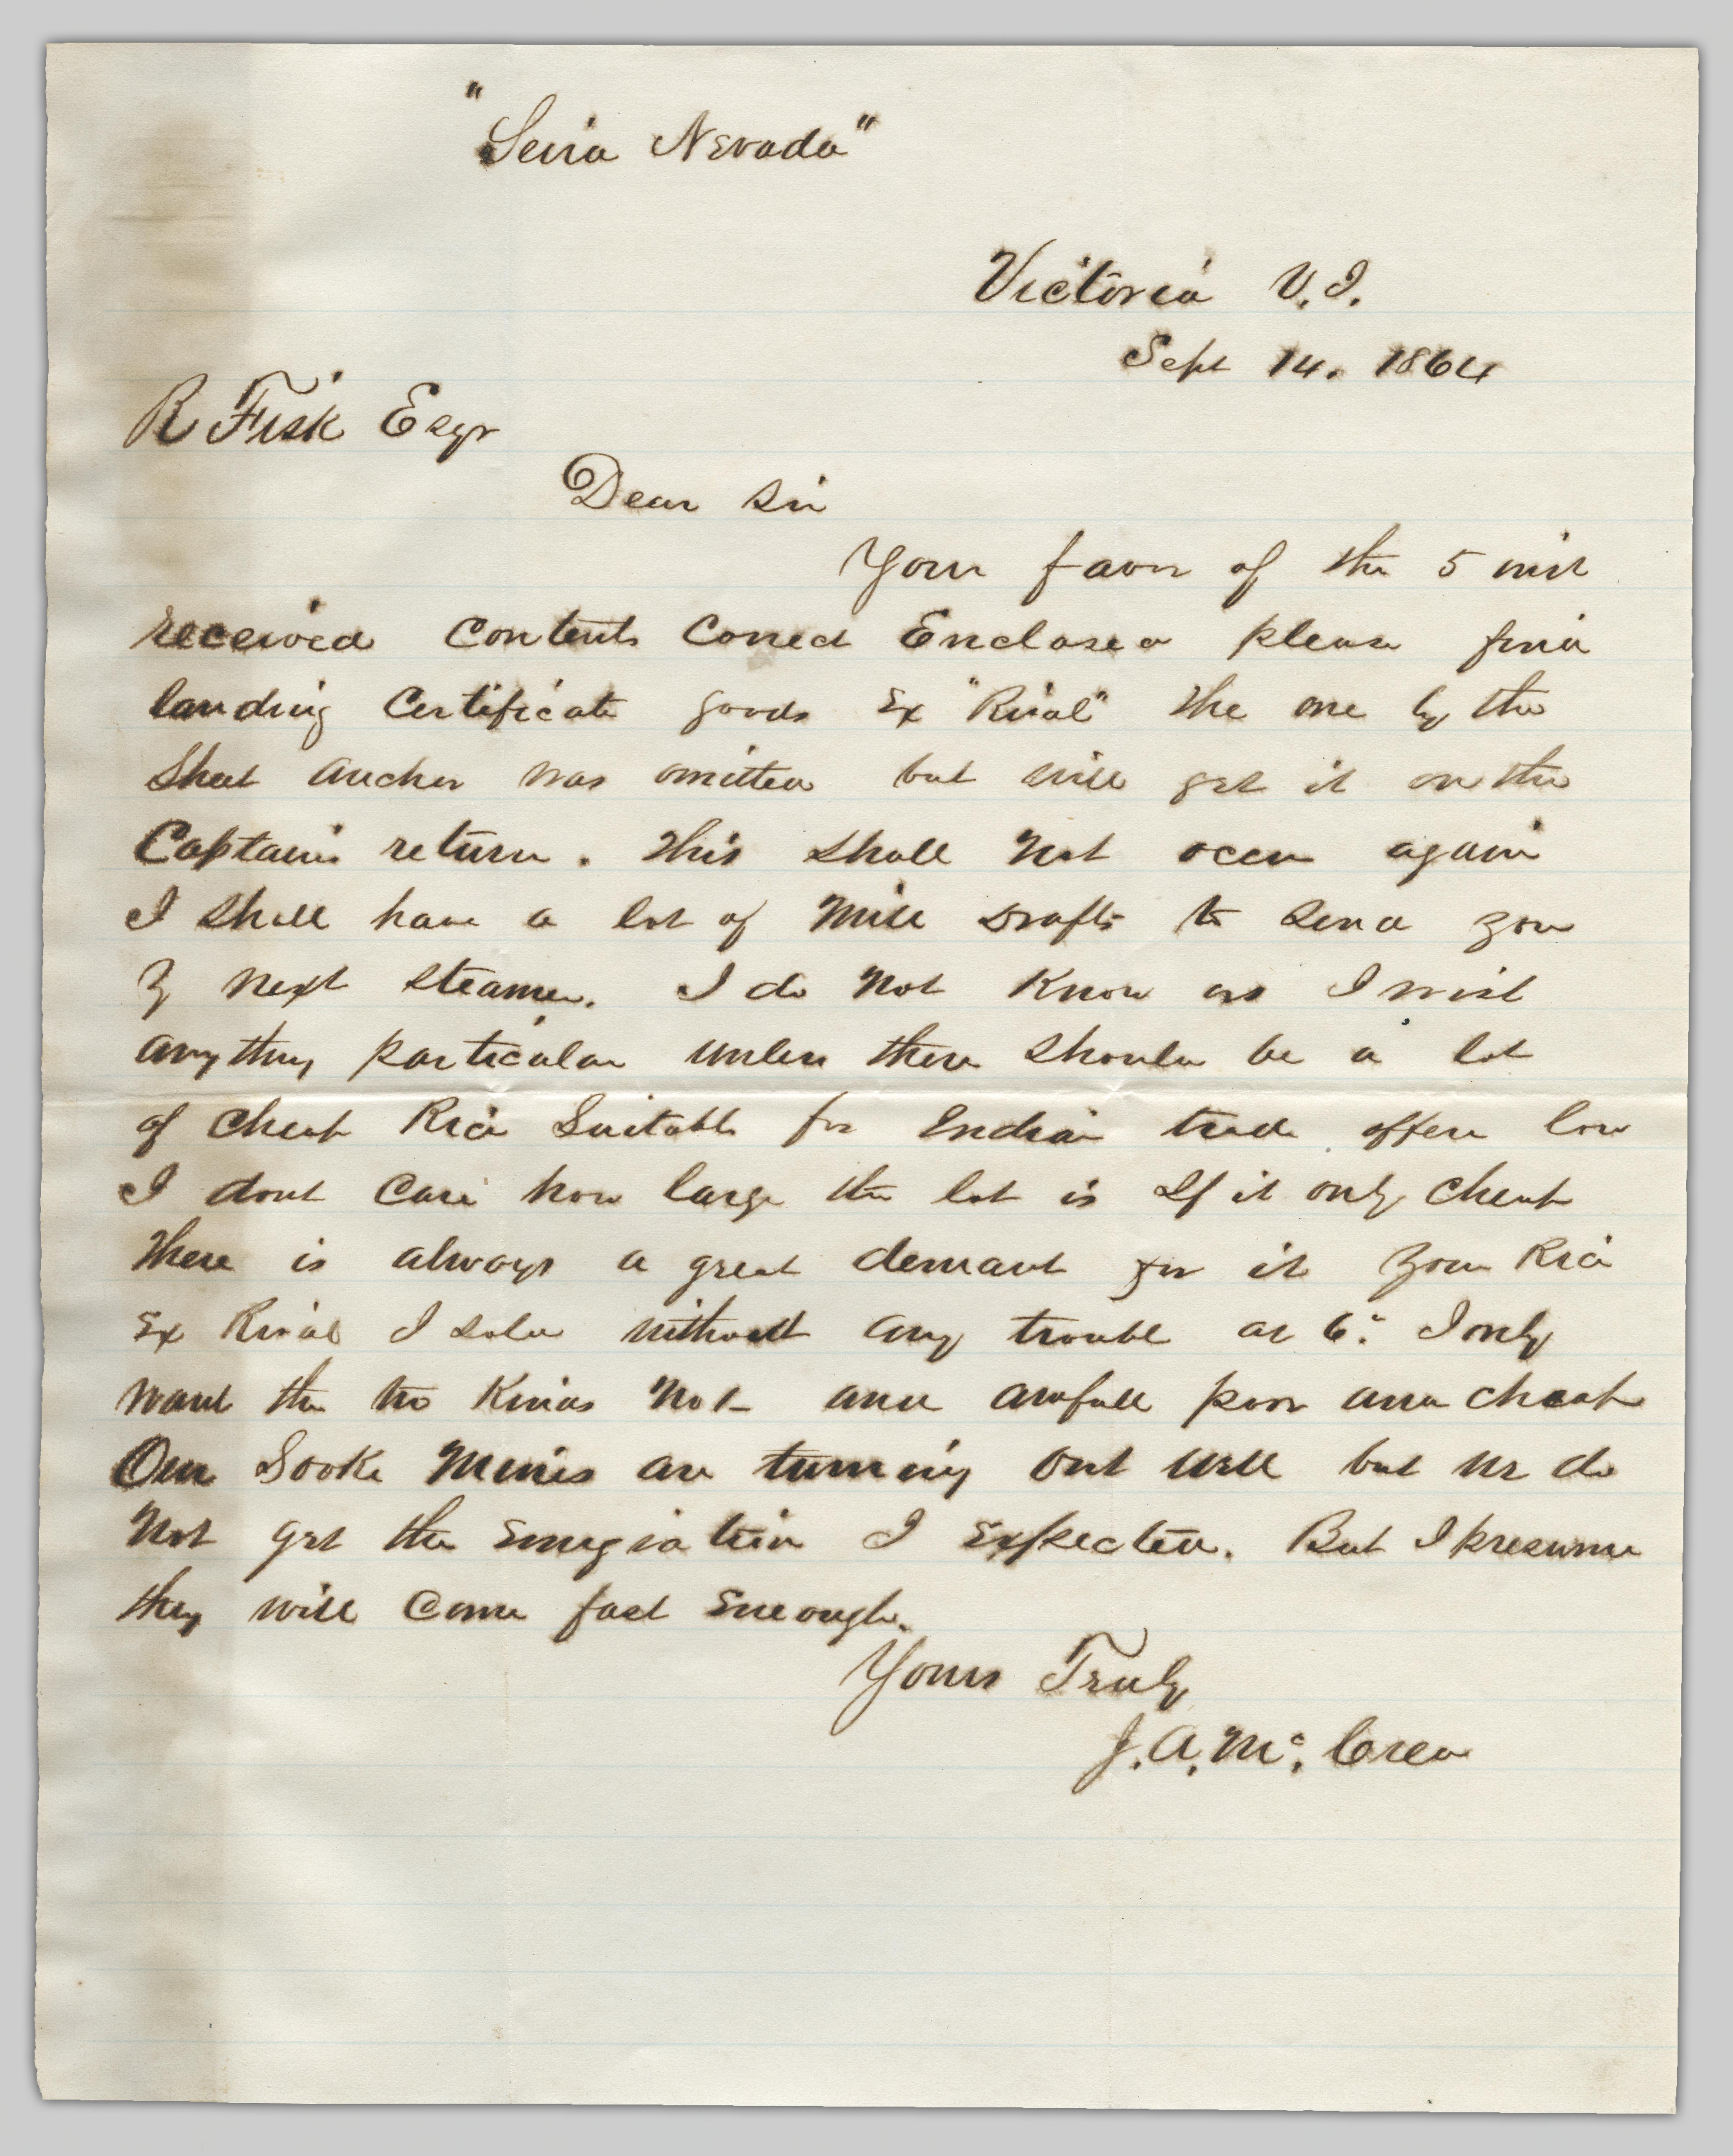 "Seira Nevada"
Victoria V.I.
Sept 14. 1864
R Fisk Esqr
Dear Sir
Your favor of the 5 inst
received Contents Correct Enclosed please find
landing Certificate goods Ex "Rival" the one by the
Sheet Anchor was omitted but will get it on the
Captains return. This shall not occur again
I shall have a lot of Mill Drafts to send you
by next steamer. I do not know as I wish
any thing particular unless there should be a lot
of cheap Rice Suitable for Indian trade offere low
I dont Care how large the lot is If it only cheap
there is always a great demant for it your Rice
Ex Rival I sold without any trouble at 6c I only
want the two Kinds No 1 and awfull poor and cheap
Our Sooke Mines are turning out well but we do
not get the Emegration I Expected. But I presume
they will Come fast Eneough.
Yours Truly
J. A. Mc. Crea